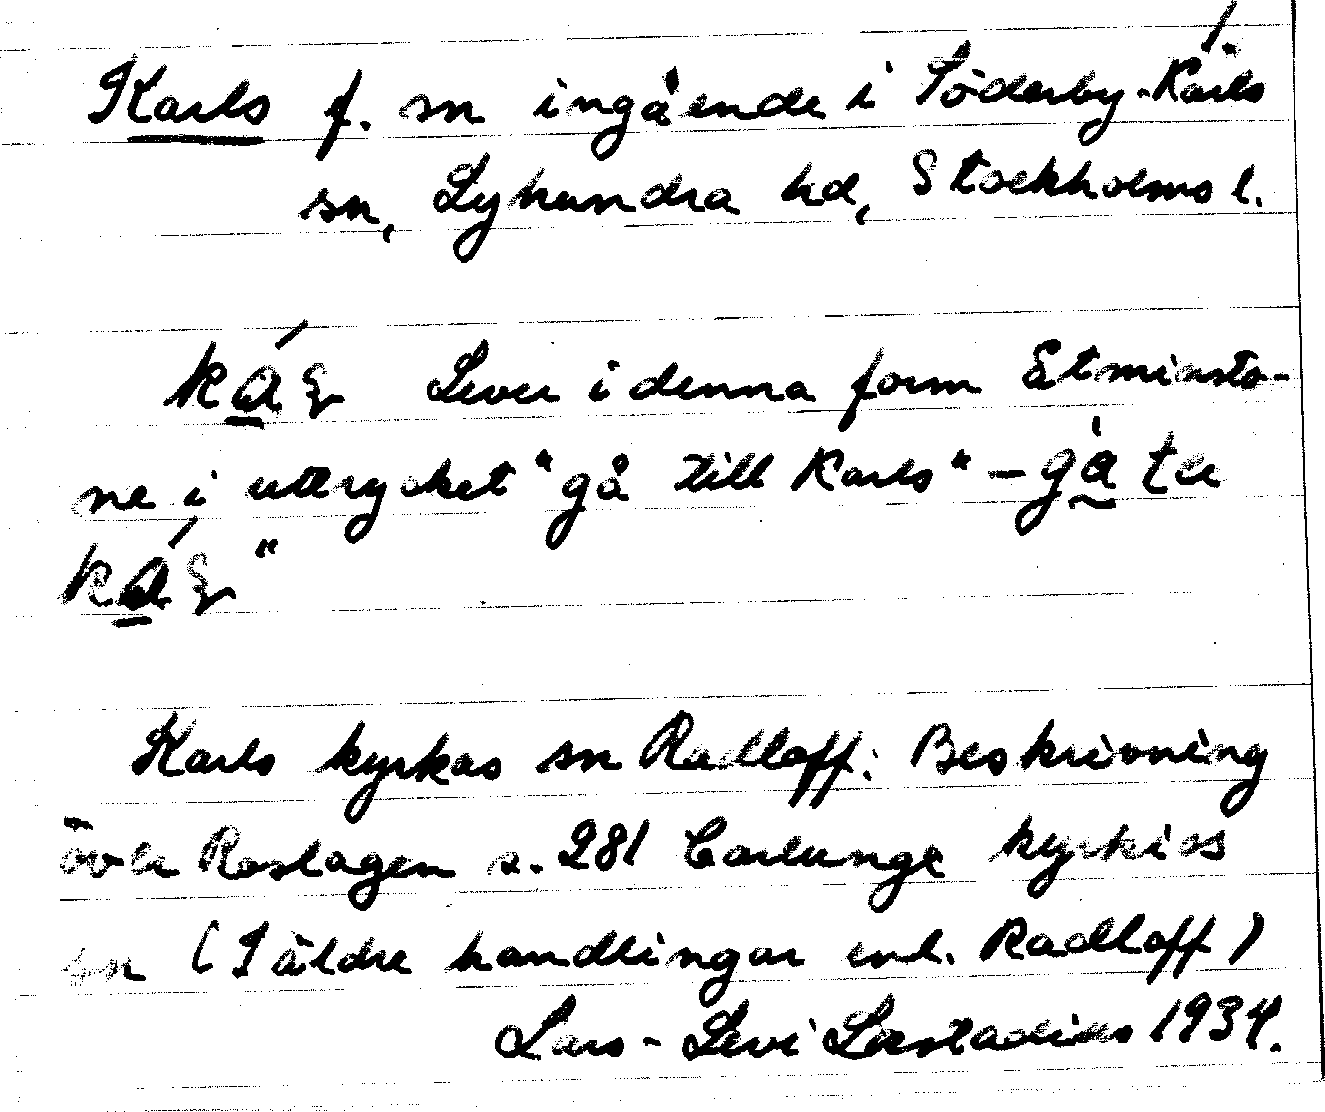 Karls f. sn ingående i Söderby-Karls
sn, Lyhundra hd, Stockholms l.
Lever i denna form åtminsto-
ne i uttrycket "gå till Karls" –
Karls kyrkas sn Radloff: Beskrivning
över Roslagen s. 281 Carlunge kyrkios
sn (I äldre handlingar enl. Radloff)
Lars-Levi Læstadius 1934.